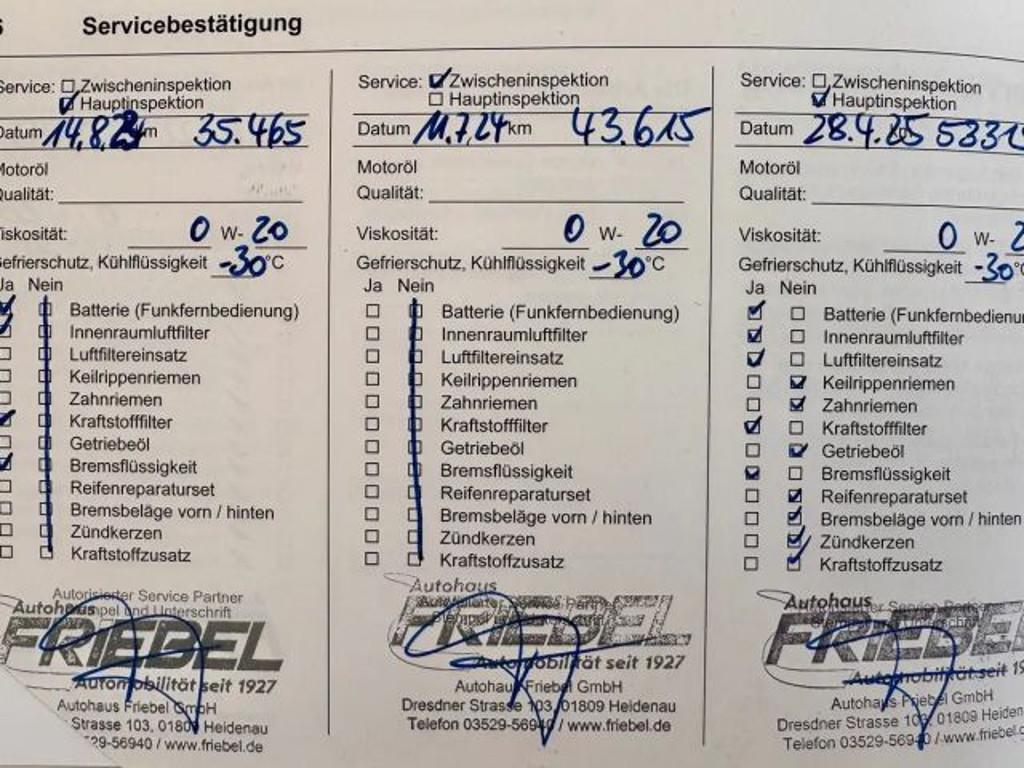 6 Servicebestätigung
Service: Zwischeninspektion
Hauptinspektion
Datum 14.8.23 km 35.465
Motoröl
Qualität:
Viskosität: 0 W- 20
Gefrierschutz, Kühlflüssigkeit -30 °C
Ja Nein
Batterie (Funkfernbedienung)
Innenraumluftfilter
Luftfiltereinsatz
Keilrippenriemen
Zahnriemen
Kraftstofffilter
Getriebeöl
Bremsflüssigkeit
Reifenreparaturset
Bremsbeläge vorn / hinten
Zündkerzen
Kraftstoffzusatz
Autorisierter Service Partner
Stempel und Unterschrift
Autohaus
FRIEBEL
Automobilität seit 1927
Autohaus Friebel GmbH
Strasse 103, 01809 Heidenau
529-56940 / www.friebel.de
Service: Zwischeninspektion
Hauptinspektion
Datum 11.7.24 km 43.615
Motoröl
Qualität:
Viskosität: 0 W- 20
Gefrierschutz, Kühlflüssigkeit -30 °C
Ja Nein
Batterie (Funkfernbedienung)
Innenraumluftfilter
Luftfiltereinsatz
Keilrippenriemen
Zahnriemen
Kraftstofffilter
Getriebeöl
Bremsflüssigkeit
Reifenreparaturset
Bremsbeläge vorn / hinten
Zündkerzen
Kraftstoffzusatz
Autorisierter Service Partner
Stempel und Unterschrift
Autohaus
FRIEBEL
Automobilität seit 1927
Autohaus Friebel GmbH
Dresdner Strasse 103, 01809 Heidenau
Telefon 03529-56940 / www.friebel.de
Service: Zwischeninspektion
Hauptinspektion
Datum 28.4.25 km 5331
Motoröl
Qualität:
Viskosität: 0 W- 2
Gefrierschutz, Kühlflüssigkeit -30 °C
Ja Nein
Batterie (Funkfernbedienu
Innenraumluftfilter
Luftfiltereinsatz
Keilrippenriemen
Zahnriemen
Kraftstofffilter
Getriebeöl
Bremsflüssigkeit
Reifenreparaturset
Bremsbeläge vorn / hinten
Zündkerzen
Kraftstoffzusatz
Autorisierter Service Partne
Stempel und Unterschrift
Autohaus
FRIEBEL
Automobilität seit 19
Autohaus Friebel GmbH
Dresdner Strasse 103, 01809 Heiden
Telefon 03529-56940 / www.friebel.d